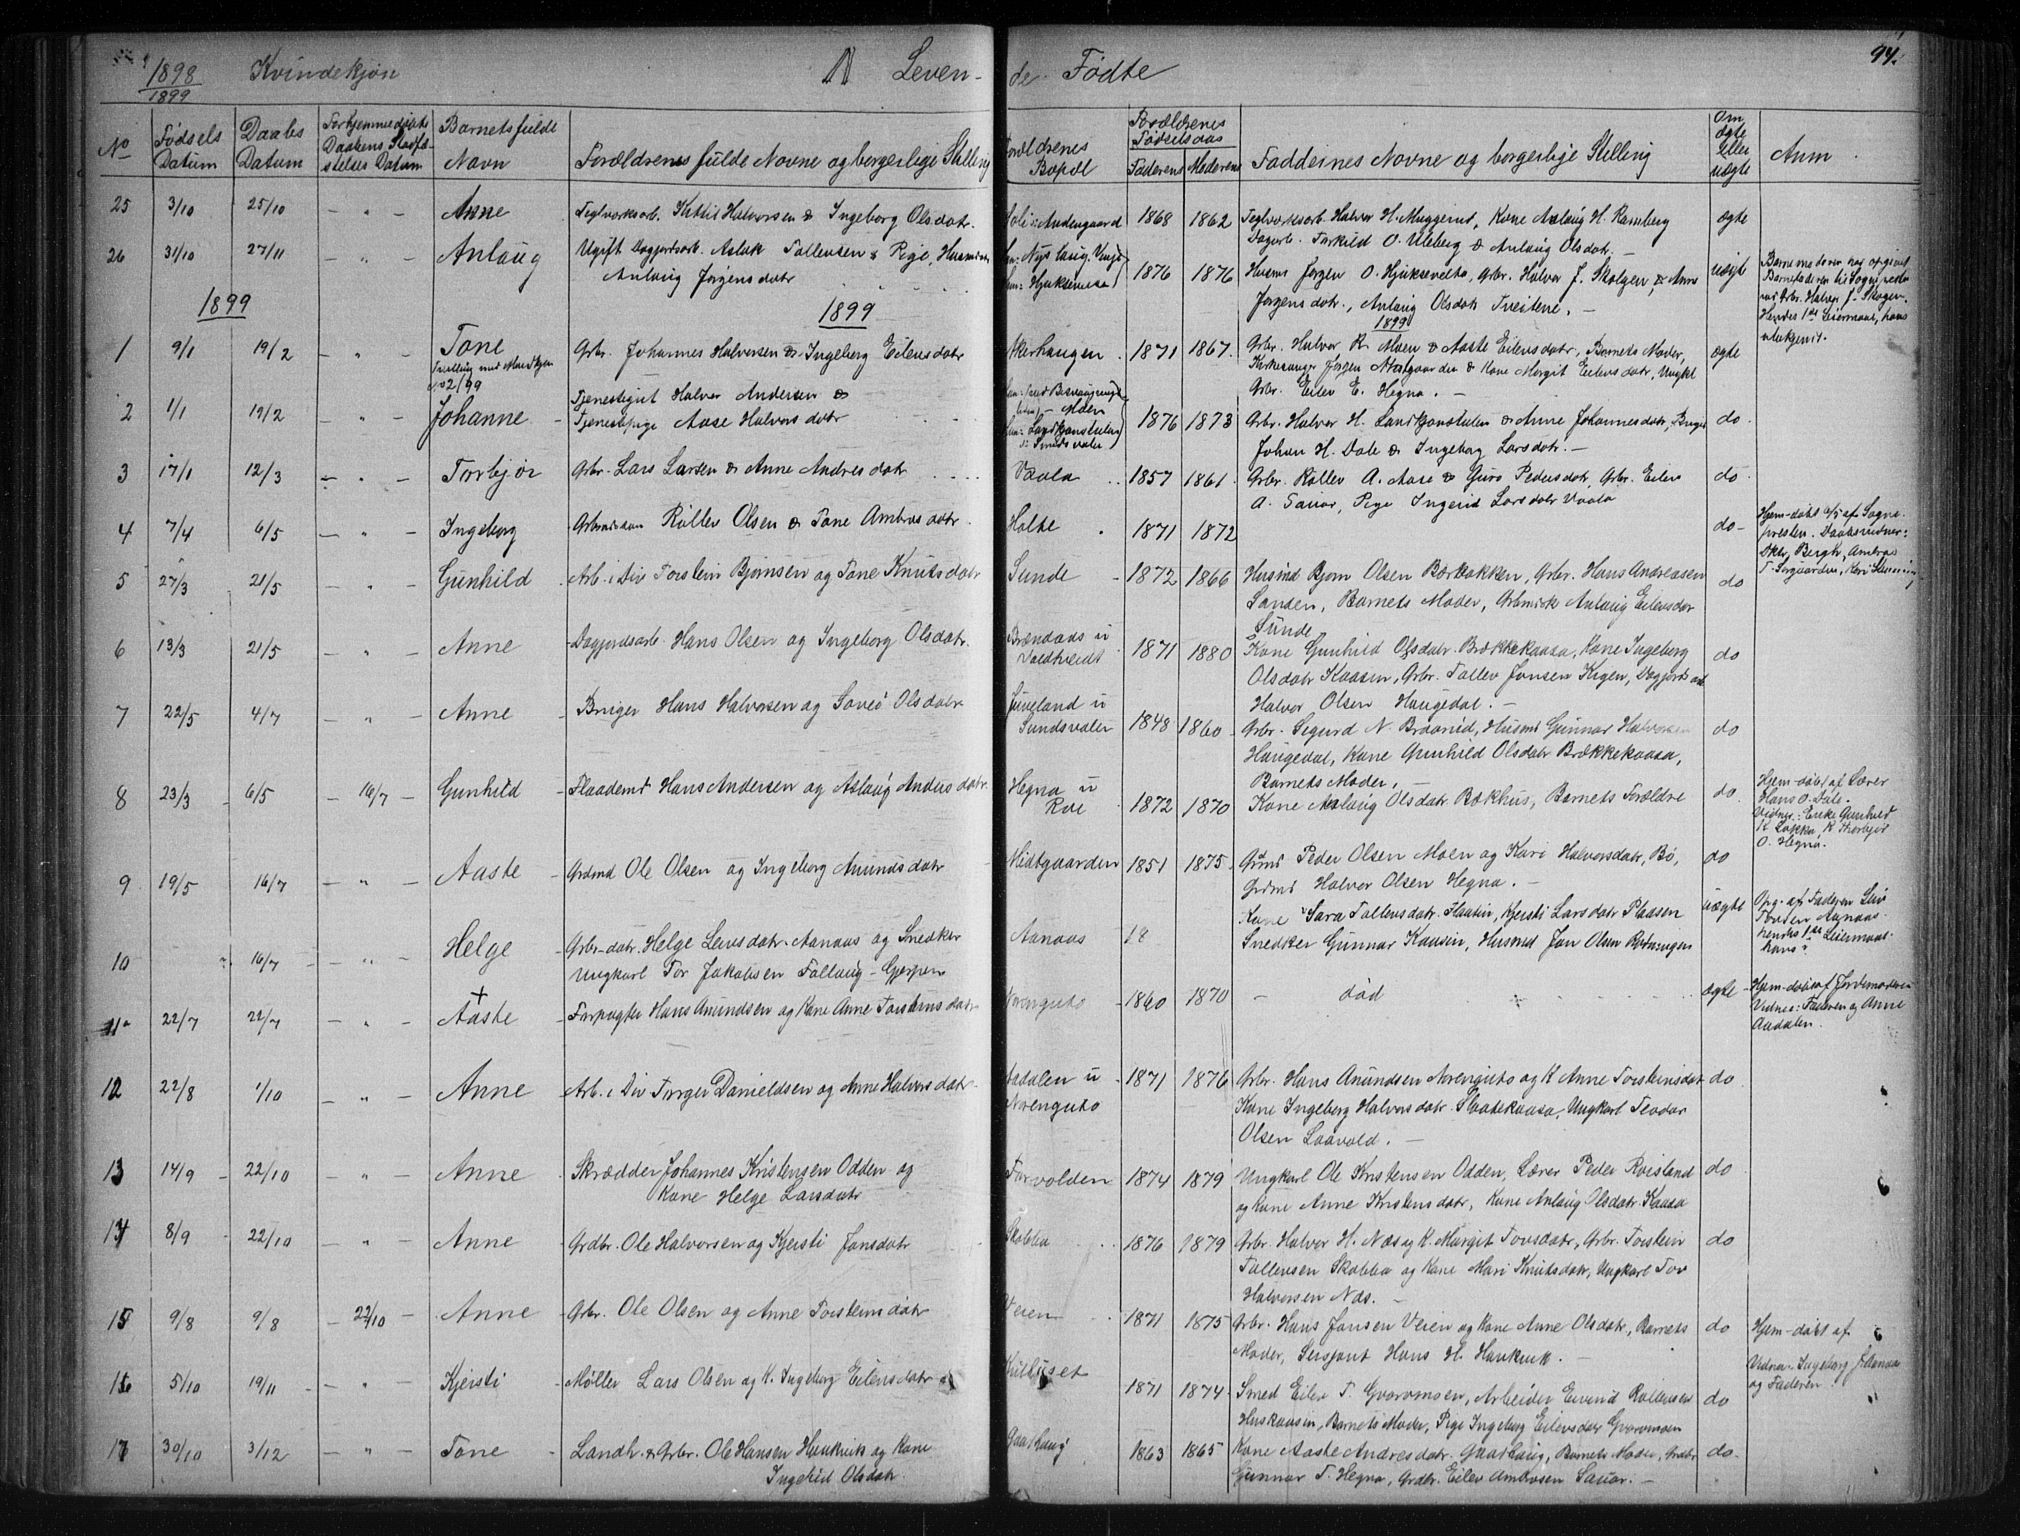 1898 Kvindekjøn Leven- de Fødte 94.
1899
No
Fødsels Datum
Daabs Datum
Forhjemmedøbte Daabens Stadfæstelses Datum
Barnets fulde Navn
Forældrenes fulde Navne og borgerlige Stilling
Forældrenes Bopæl
Forældrenes Fødselsaar
Faderens Moderens
Faddernes Navne og borgerlige Stilling
Om ægte eller uægte
Anm.
25 3/10 25/10 - " - Anne Teglværksarb. Kittil Halvorsen & Ingeborg Olsdatr. 1868 1862 Teglværksarb. Halvor H. Muggerud, Kone Aslaug H. Ramberg ægte
Dagarb. Torkild O. Uleberg & Anlaug Olsdatr. -
26 31/10 27/11 - " - Anlaug Ugift Dagarb. Aslak Tallevsen & Pige,
Anlaug Jørgensdatr 1876 1876 Husm Jørgen O. Hjuksevelta, Grbr. Halvor J. Skolgen, & Anne uægte
Jørgensdatr., Anlaug Olsdatr Tveitene. -
Barnemoderen har opgivet
Barnefaderen til Sognepræsten
Grbr. Halvor J. Skogen.
Hendes 1ste Leiermaal, hans
ubekjendt.
1899 1899 1899
1 9/1 19/2 - " - Tone Grbr. Johannes Halvorsen & Ingeborg Eilevsdatr Akerhaugen 1871 1867 Grbr. Halvor K. Moen & Aaste Eilevsdatr, Barnets Moder, ægte
Tvilling med Mandkjøn
No 2/99
Kirkesanger Jørgen & Kone Margit Eilevsdatr, Ungkl
Grbr. Eilev E. Hegna. -
2 1/1 19/2 Johanne - Tjenestegut Halvor Andersen &
Tjenestepige Aase Halvorsdatr 1876 1873 Grbr. Halvor H. & Anne Johannesdatr, do
Johan H. Dale & Ingeborg Larsdatr. -
3 17/1 12/3 - " - Torbjør Grbr. Lars Larsen & Anne Andresdatr Vaala 1857 1861 Grbr. Rollev A. Aase & Guro Pedersdatr, Grbr. Eilev do
A. Sauar, Pige Ingerid Larsdatr Vaala
4 7/4 6/5 - " - Ingeborg Rollev Olsen & Tone Ambrosdatr Holte 1871 1872 do -
Hjem-døbt af Sogne-
presten. Daabsvidner:
5 27/3 21/5 - " - Gunhild - Arb. i Div Torstein Bjørnsen og Tone Knutsdatr Sunde 1872 1866 Husmd Bjørn Olsen Bækbakken, Grbr. Hans Andreasen do
Sanden, Barnets Moder, Anlaug Eilevsdatr
Sunde
6 13/3 21/5 - " - Anne - Hans Olsen og Ingeborg Olsdatr. 1871 1880 Kone Gunhild Olsdatr Brækkekaasa, Kone Ingeborg do
Olsdatr Kaasen, Grbr. Tallev Jonsen
Halvor Olsen Haugedal. -
7 22/5 4/7 - " - Anne - Bruger Hans Halvorsen og Olsdatr Juveland u
Sundsvalen 1848 1860 Grbr. Sigurd N. Husmd Gunnar Halvorsen do
Haugedal, Kone Gunhild Olsdatr Brækkekaasa,
Barnets Moder, -
8 23/3 - 6/5 - 16/7 - Gunhild - Hans Andersen og Aslaug Andersdatr. Hegna u
Roe 1872 1870 Kone Aslaug Olsdatr Bækhus, Barnets Forældre do
Hjem-døbt af Lærer
Hans O. Dale.
Vidner: Enke Gunhild
O. Hegna.
9 19/5 16/7 - " - Aaste - Grdmd Ole Olsen og Ingeborg Anundsdatr Midtgaarden 1851 1875 Grdmd Peder Olsen Moen og Kari Halvorsdatr, Bø, do
Grdmd Halvor Olsen Hegna. -
10 16/7 - " - Helge - Grbr-datr. Helge Leivsdatr. Aanaas og Snedker Aanaas 18 Kone Sara Tallevsdatr. Haatin, Kjersti Larsdatr Plassen uægte
Ungkarl Tor Jakobsen Follaug - Gjerpen Snedker Gunnar Kaasin, Husmd Jon Olsen
Opg. af Faderen Leiv
hendes 1ste Leiermaal
hans?
11 22/7 22/7 - " - Aaste - Forpagter Hans Anundsen og Kone Anne Torsteinsdatr Norenguto 1860 1870 - død ægte -
Hjem-døbt af Jordemoderen
Vidner: Faderen og Anne
Aadalen.
12 22/8 1/10 - " - Anne - Arb. i Div Torger Danieldsen og Anne Halvorsdatr. Aadalen u
Norenguto 1871 1876 Grbr. Hans Anundsen Norenguto og K Anne Torsteinsdatr do
Kone Ingeborg Halvorsdatr. Slaatekaasa, Ungkarl Teodor
Olsen Laavold. -
13 14/9 - 22/10 " - Anne - Skrædder Johannes Kristensen Odden og
Kone Helge Larsdatr Farvolden 1874 1879 Ungkarl Ole Kristensen Odden, Lærer Peder Kvisland do
og Kone Anne Kristensdatr, Kone Anlaug Olsdatr. Kaasa
14 8/9 22/10 - " - Anne - Grdbr. Ole Halvorsen og Kjersti Jonsdatr Skobba 1876 1879 Grbr. Halvor H. Næs og K. Margit Tovsdatr, Grbr. Torstein do
Tallevsen Skobba og Kone Mari Knutsdatr, Ungkarl Tov
Halvorsen Næs. -
15 9/8 9/8 - 22/10 - Anne - Grbr. Ole Olsen og Anne Torsteinsdatr Veien 1871 1875 Grbr. Hans Jansen Veien og Kone Anne Olsdatr, Barnets do
Moder, Sersjant Hans H. Haukvik. -
Hjem-døbt af
Vidner: Ingeborg
og Faderen
16 5/10 19/11 - " - Kjersti - Møller Lars Olsen og K. Ingeborg Eilevsdatr 1871 1874 Smed Eilev T. Gvaromoen, Arbeider Eivind Rollevsen do
Huskaasin, Barnets Moder, Pige Ingeborg Eilevsdatr Gvaromoen
17 30/10 3/12 - " - Tone - Landh. & Grbr. Ole Hansen Haukvik og Kone
Ingerid Olsdatr. 1863 1865 Kone Aaste Andresdatr, Barnets Moder, Grdbr do
Gunnar T. Hegna, Grdbr. Eilev Ambrosen Sauar. -